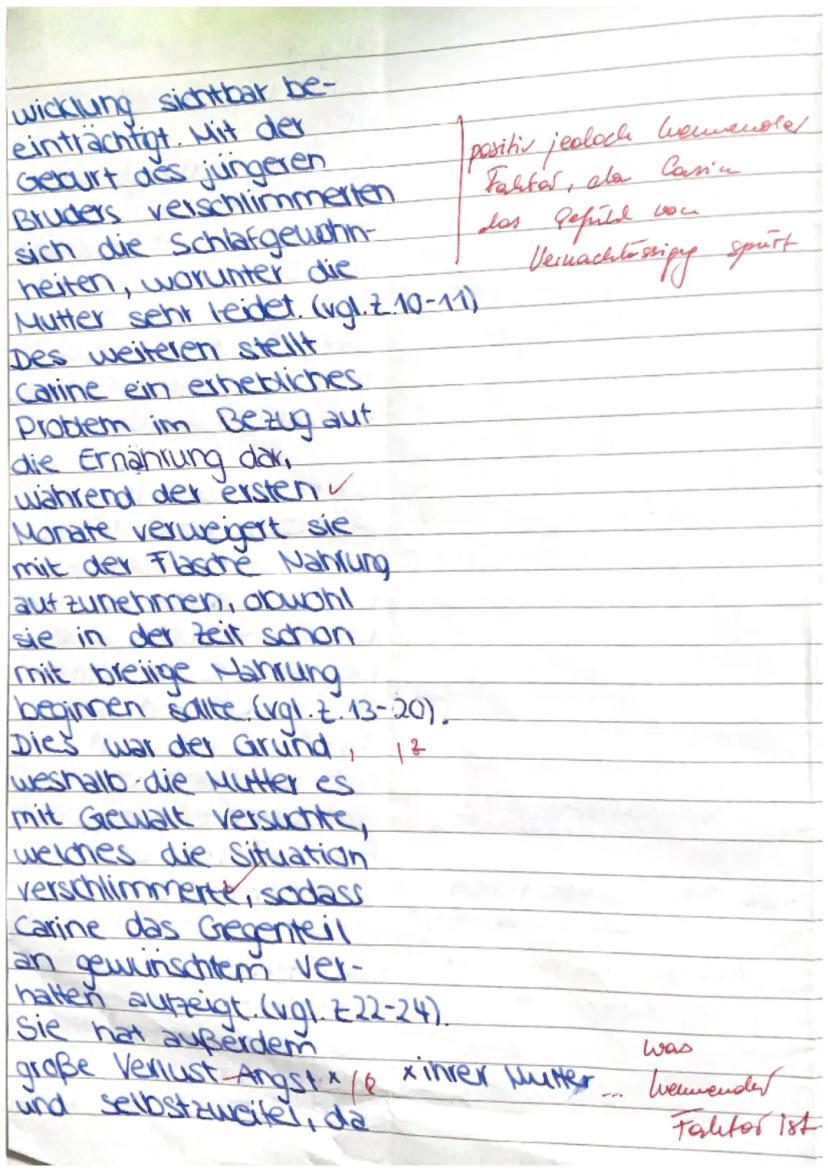 wicklung sichtbar be-
einträchtigt. Mit der
Geburt des jüngeren
Bruders verschlimmerten
sich die Schlafgewohn-
heiten, worunter die
Mutter sehr leidet. (vgl. Z.10-11)
positiv jedoch hemmender
Faktor, da Carin
das Gefühl von
Vernachlässigg spürt
Des weiteren stellt
Carine ein erhebliches
Problem im Bezug auf
die Ernährung dar,
während der ersten ✓
Monate verweigert sie
mit der Flasche Nahrung
aufzunehmen, obwohl
sie in der Zeit schon
mit breiige Nahrung
beginnen sollte. (vgl. Z. 13-20).
Dies war der Grund, | Z
weshalb die Mutter es
mit Gewalt versuchte,
welches die Situation
verschlimmerte, sodass
Carine das Gegenteil
an gewünschtem Ver-
halten aufzeigt. (vgl. Z 22-24).
Sie hat außerdem
große Verlust-Angst x x ihrer Mutter
und selbstzweifel, da
... was
hemmender
Faktor ist